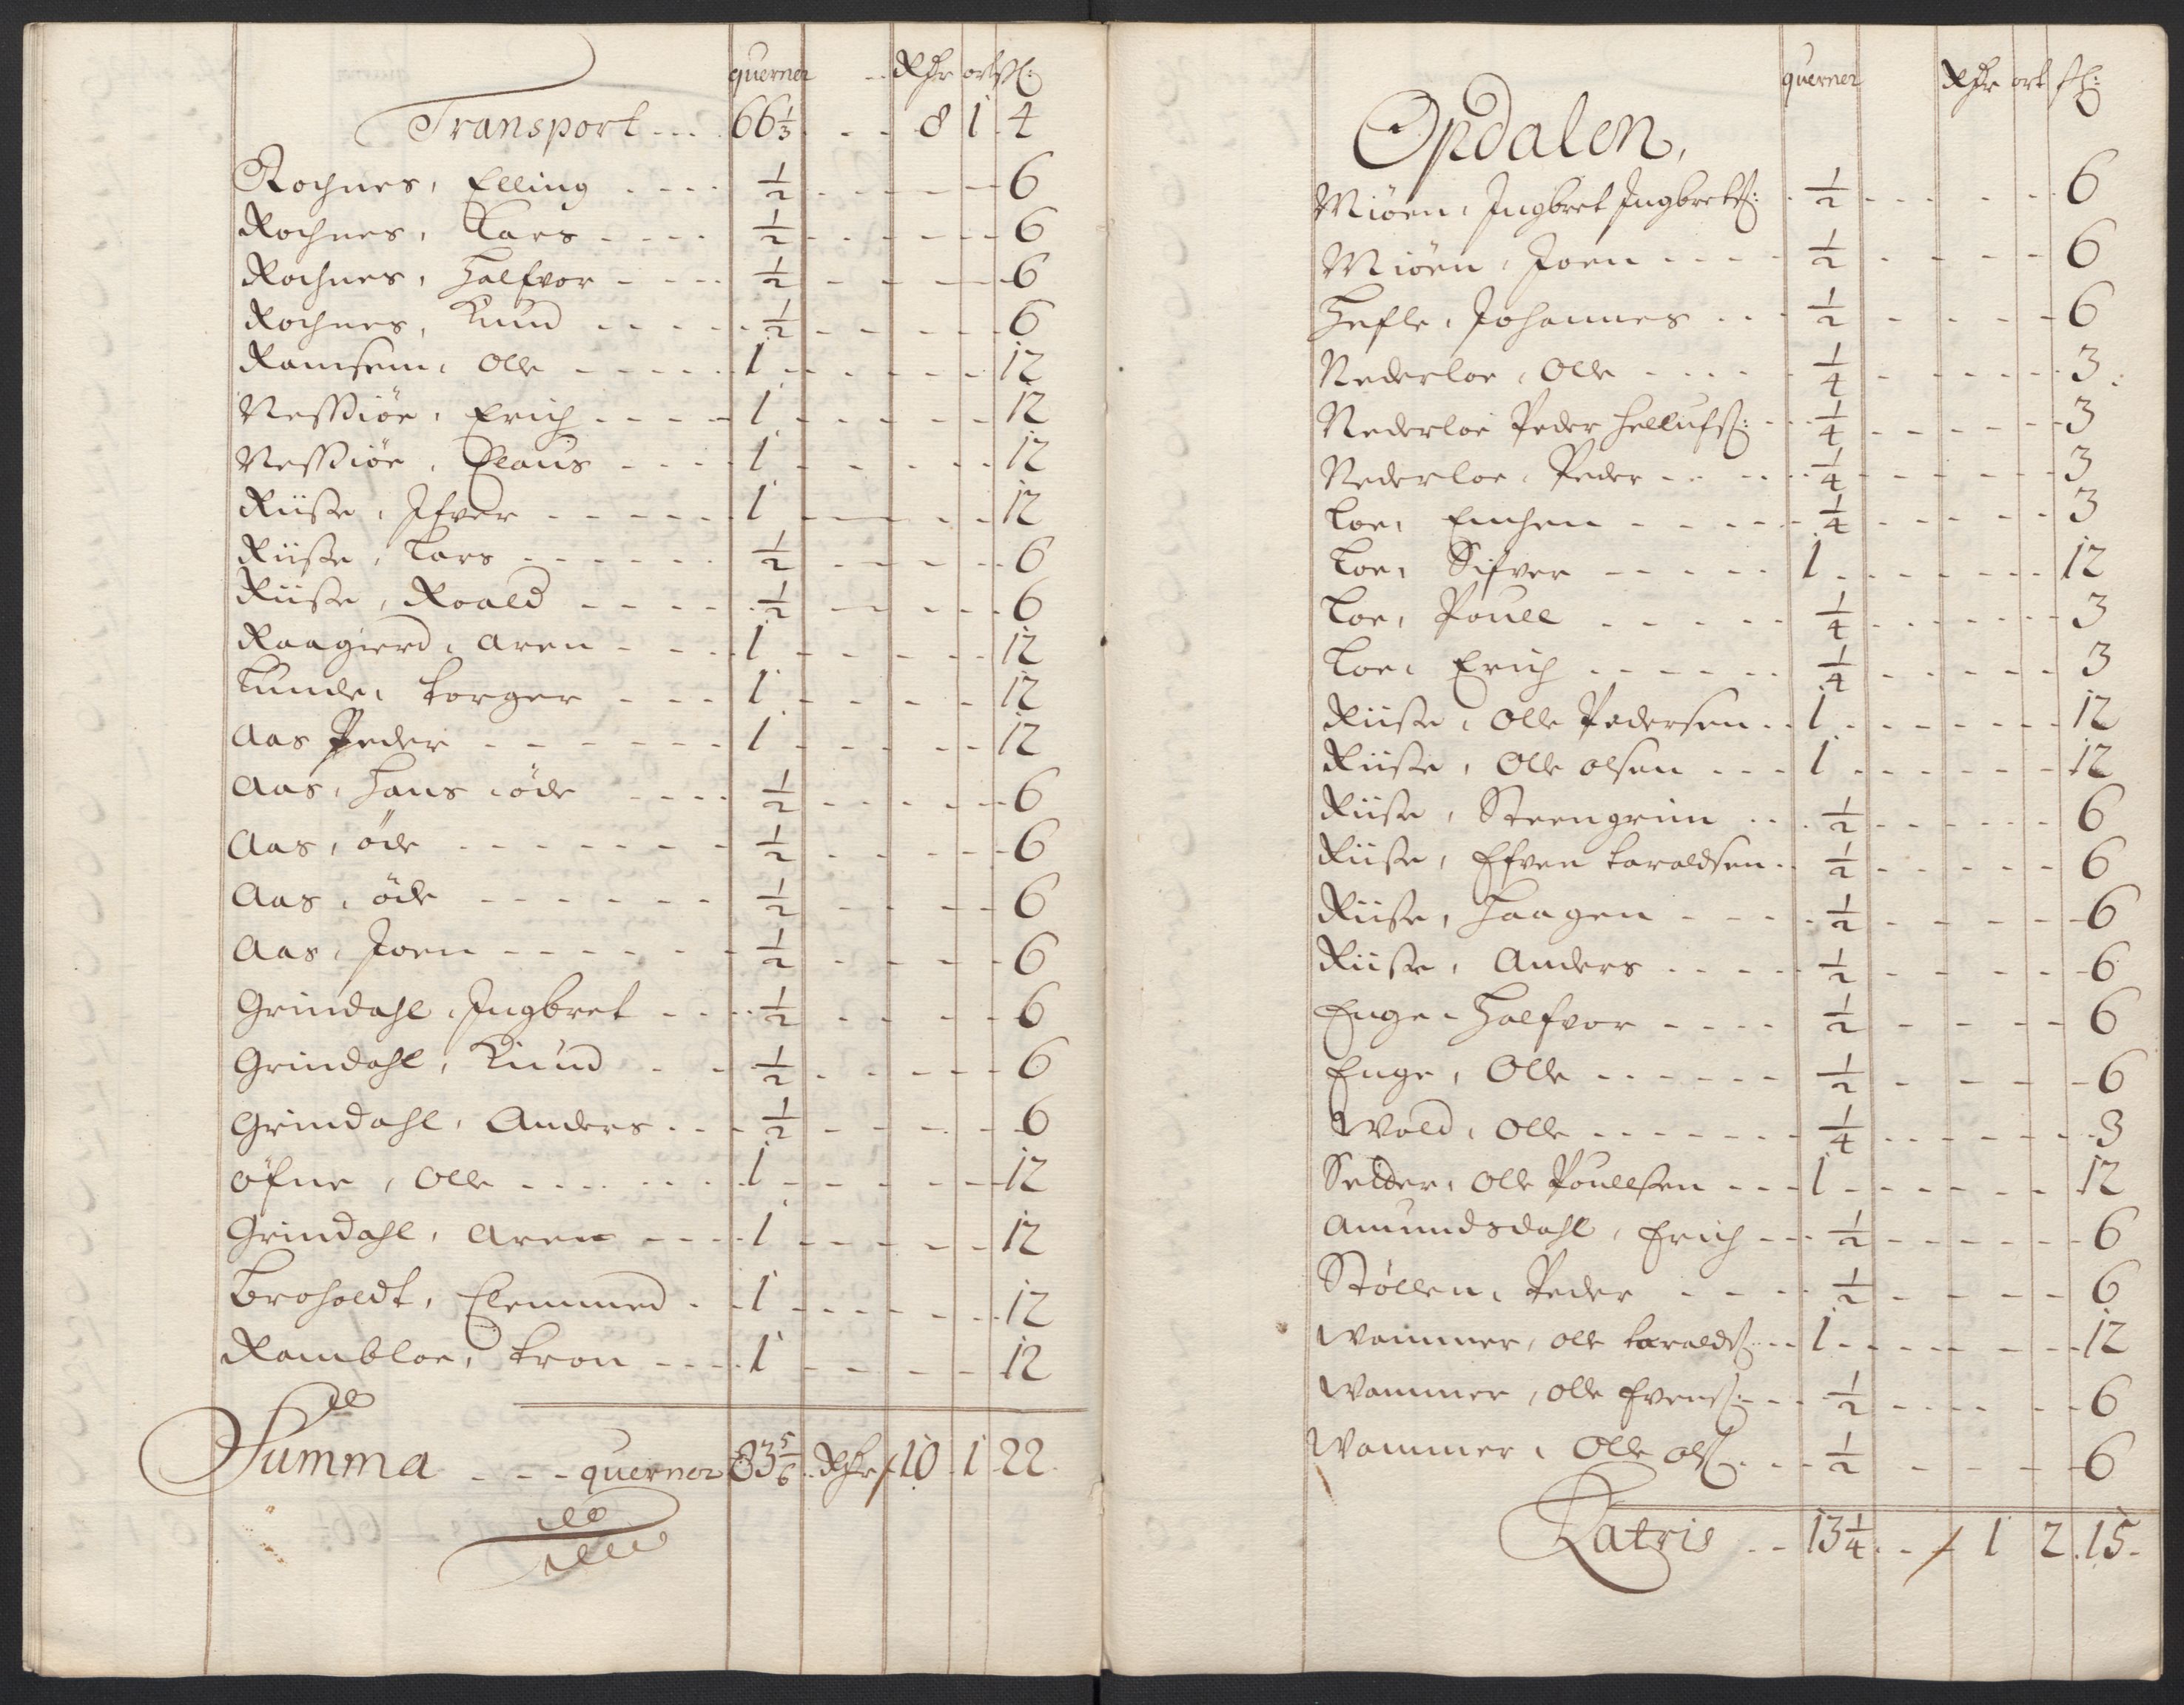 querner Rdr ort ſſ:
Transport 66 1/3 8 1 4
Rochnes, Elling 1/2 6
Rochnes, Lars 1/2 6
Rochnes, Halfvor 1/2 6
Rochnes, Knud 1/2 6
Ramsem, Olle 1 12
Erich 1 12
Claus 1 12
Riise, Ifver 1 12
Riise, Lars 1/2 6
Riise, Roald 1/2 6
Raagierd, Aren 1 12
Lunde, Torger 1 12
Aas Peder 1 12
Aas, Hans, öde 1/2 6
Aas, öde 1/2 6
Aas, öde 1/2 6
Aas, Joen 1/2 6
Grindahl, Ingbret 1/2 6
Grindahl, Knud 1/2 6
Grindahl, Anders 1/2 6
öfne, Olle 1 12
Grindahl, Aren 1 12
Broholdt, Clemmed 1 12
Rambloe, Tron 1 12
Summa querner 83 5/6 Rdr 10 1 22
querner Rdr ort ſſ:
Opdalen,
Miöen, Ingbret Ingbretſ: 1/2 6
Miöen, Joen 1/2 6
Hefle, Johannes 1/2 6
Nederloe, Olle 1/4 3
Nederloe Peder Hellufſ: 1/4 3
Nederloe, Peder 1/4 3
Loe, 1/4 3
Loe, Sifver 1 12
Loe, Pouell 1/4 3
Loe, Erich 1/4 3
Riise, Olle Pedersen 1 12
Riise, Olle olsen 1 12
Riise, Steengrim 1/2 6
Riise, Efven Taraldsen 1/2 6
Riise, Haagen 1/2 6
Riise, Anders 1/2 6
Enge, Halfvor 1/2 6
Enge, Olle 1/2 6
Wold, Olle 1/4 3
Setter, Olle Pouelsen 1 12
Amundsdahl, Erich 1/2 6
Stöllen, Peder 1/2 6
Wammer, olle Taraldſ: 1 12
Wammer, olle Evenſ: 1/2 6
Wammer, Olle olſ: 1/2 6
Latris 13 1/4 1 2 15